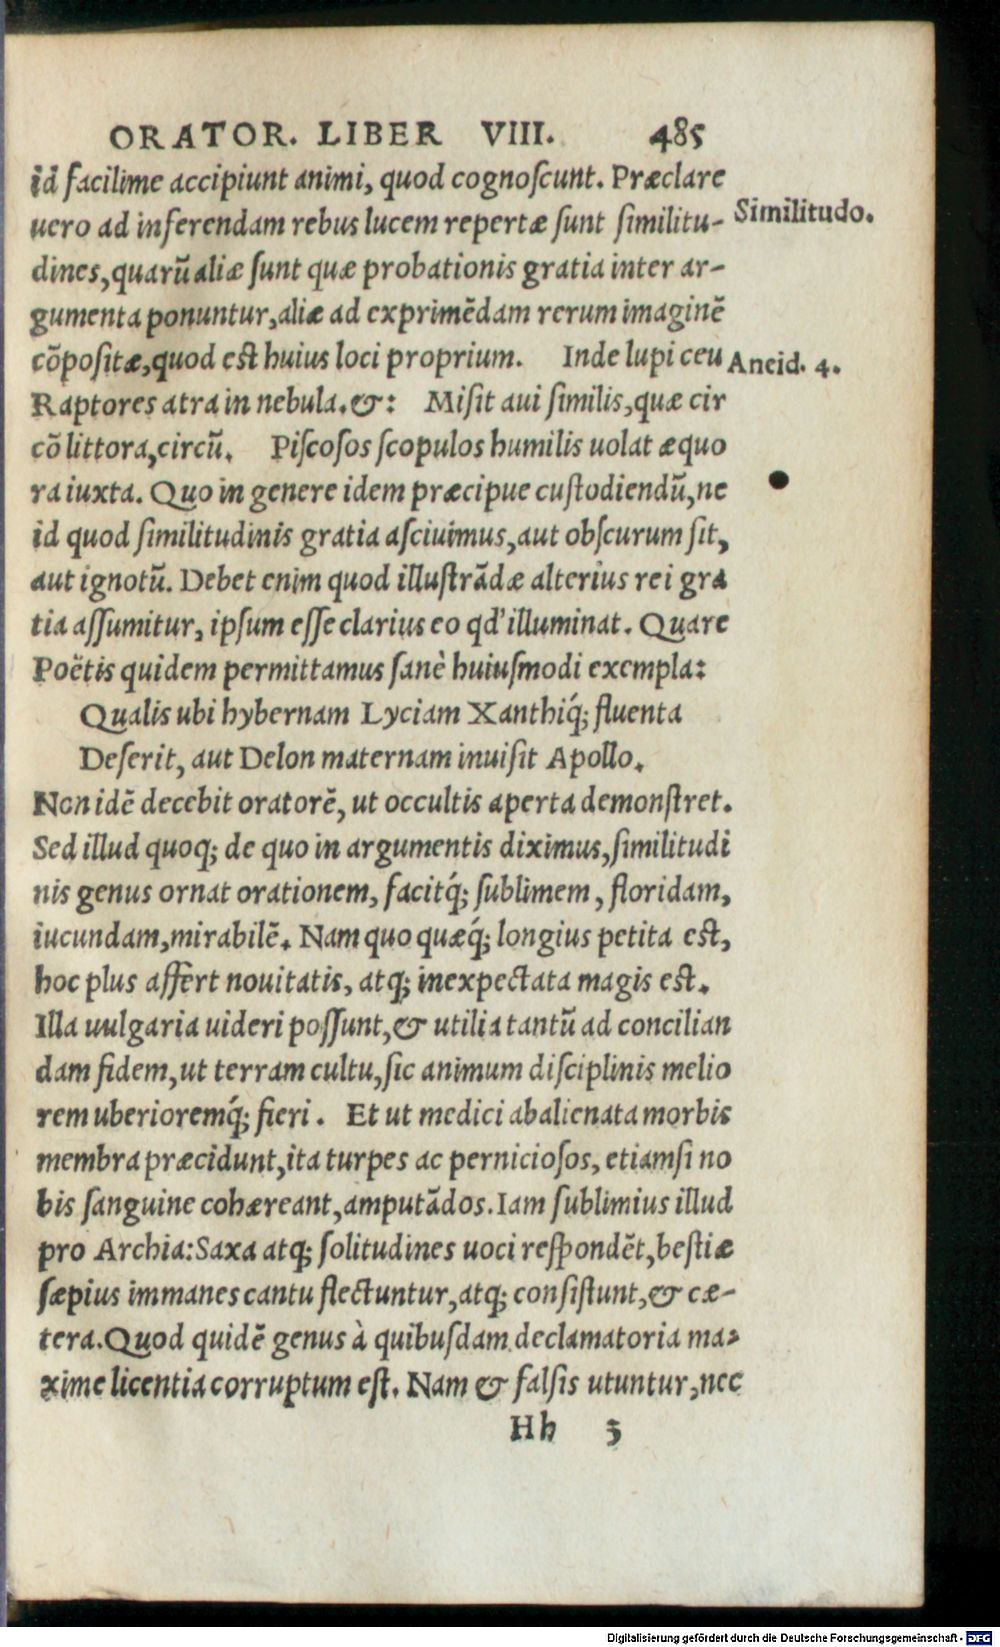 ORATOR. LIBER VIII. 485
id facilime accipiunt animi, quod cognoſcunt. Præclare
uero ad inferendam rebus lucem repertæ ſunt ſimilitu-
Similitudo.
dines, quarū aliæ ſunt quæ probationis gratia inter ar-
gumenta ponuntur, aliæ ad exprimēdam rerum imaginē
cōpoſitæ, quod est huius loci proprium. Inde lupi ceu
Aneid. 4.
Raptores atra in nebula. &: Miſit aui ſimilis, quæ cir
cō littora, circū. Piſcoſos ſcopulos humilis uolat æquo
ra iuxta. Quo in genere idem præcipue cuſtodiendū, ne
id quod ſimilitudinis gratia aſciuimus, aut obſcurum ſit,
aut ignotū. Debet enim quod illuſtrādæ alterius rei gra
tia aſſumitur, ipſum eſſe clarius eo qd' illuminat. Quare
Poëtis quidem permittamus ſanè huiuſmodi exempla:
Qualis ubi hybernam Lyciam Xanthiq́; fluenta
Deſerit, aut Delon maternam inuiſit Apollo.
Non idē decebit oratorē, ut occultis aperta demonſtret.
Sed illud quoq; de quo in argumentis diximus, ſimilitudi
nis genus ornat orationem, facitq́; ſublimem, floridam,
iucundam, mirabilē. Nam quo quæq́; longius petita est,
hoc plus affert nouitatis, atq; inexpectata magis est.
Illa uulgaria uideri poſſunt, & utilia tantū ad concilian
dam fidem, ut terram cultu, ſic animum diſciplinis melio
rem uberioremq́; fieri. Et ut medici abalienata morbis
membra præcidunt, ita turpes ac pernicioſos, etiamſi no
bis ſanguine cohæreant, amputādos. Iam ſublimius illud
pro Archia: Saxa atq; ſolitudines uoci reſpondēt, beſtiæ
ſæpius immanes cantu flectuntur, atq; conſiſtunt, & cæ-
tera. Quod quidē genus à quibuſdam declamatoria ma-
xime licentia corruptum eſt. Nam & falſis utuntur, nec
Hh 3
Digitalisierung gefördert durch die Deutsche Forschungsgemeinschaft - DFG